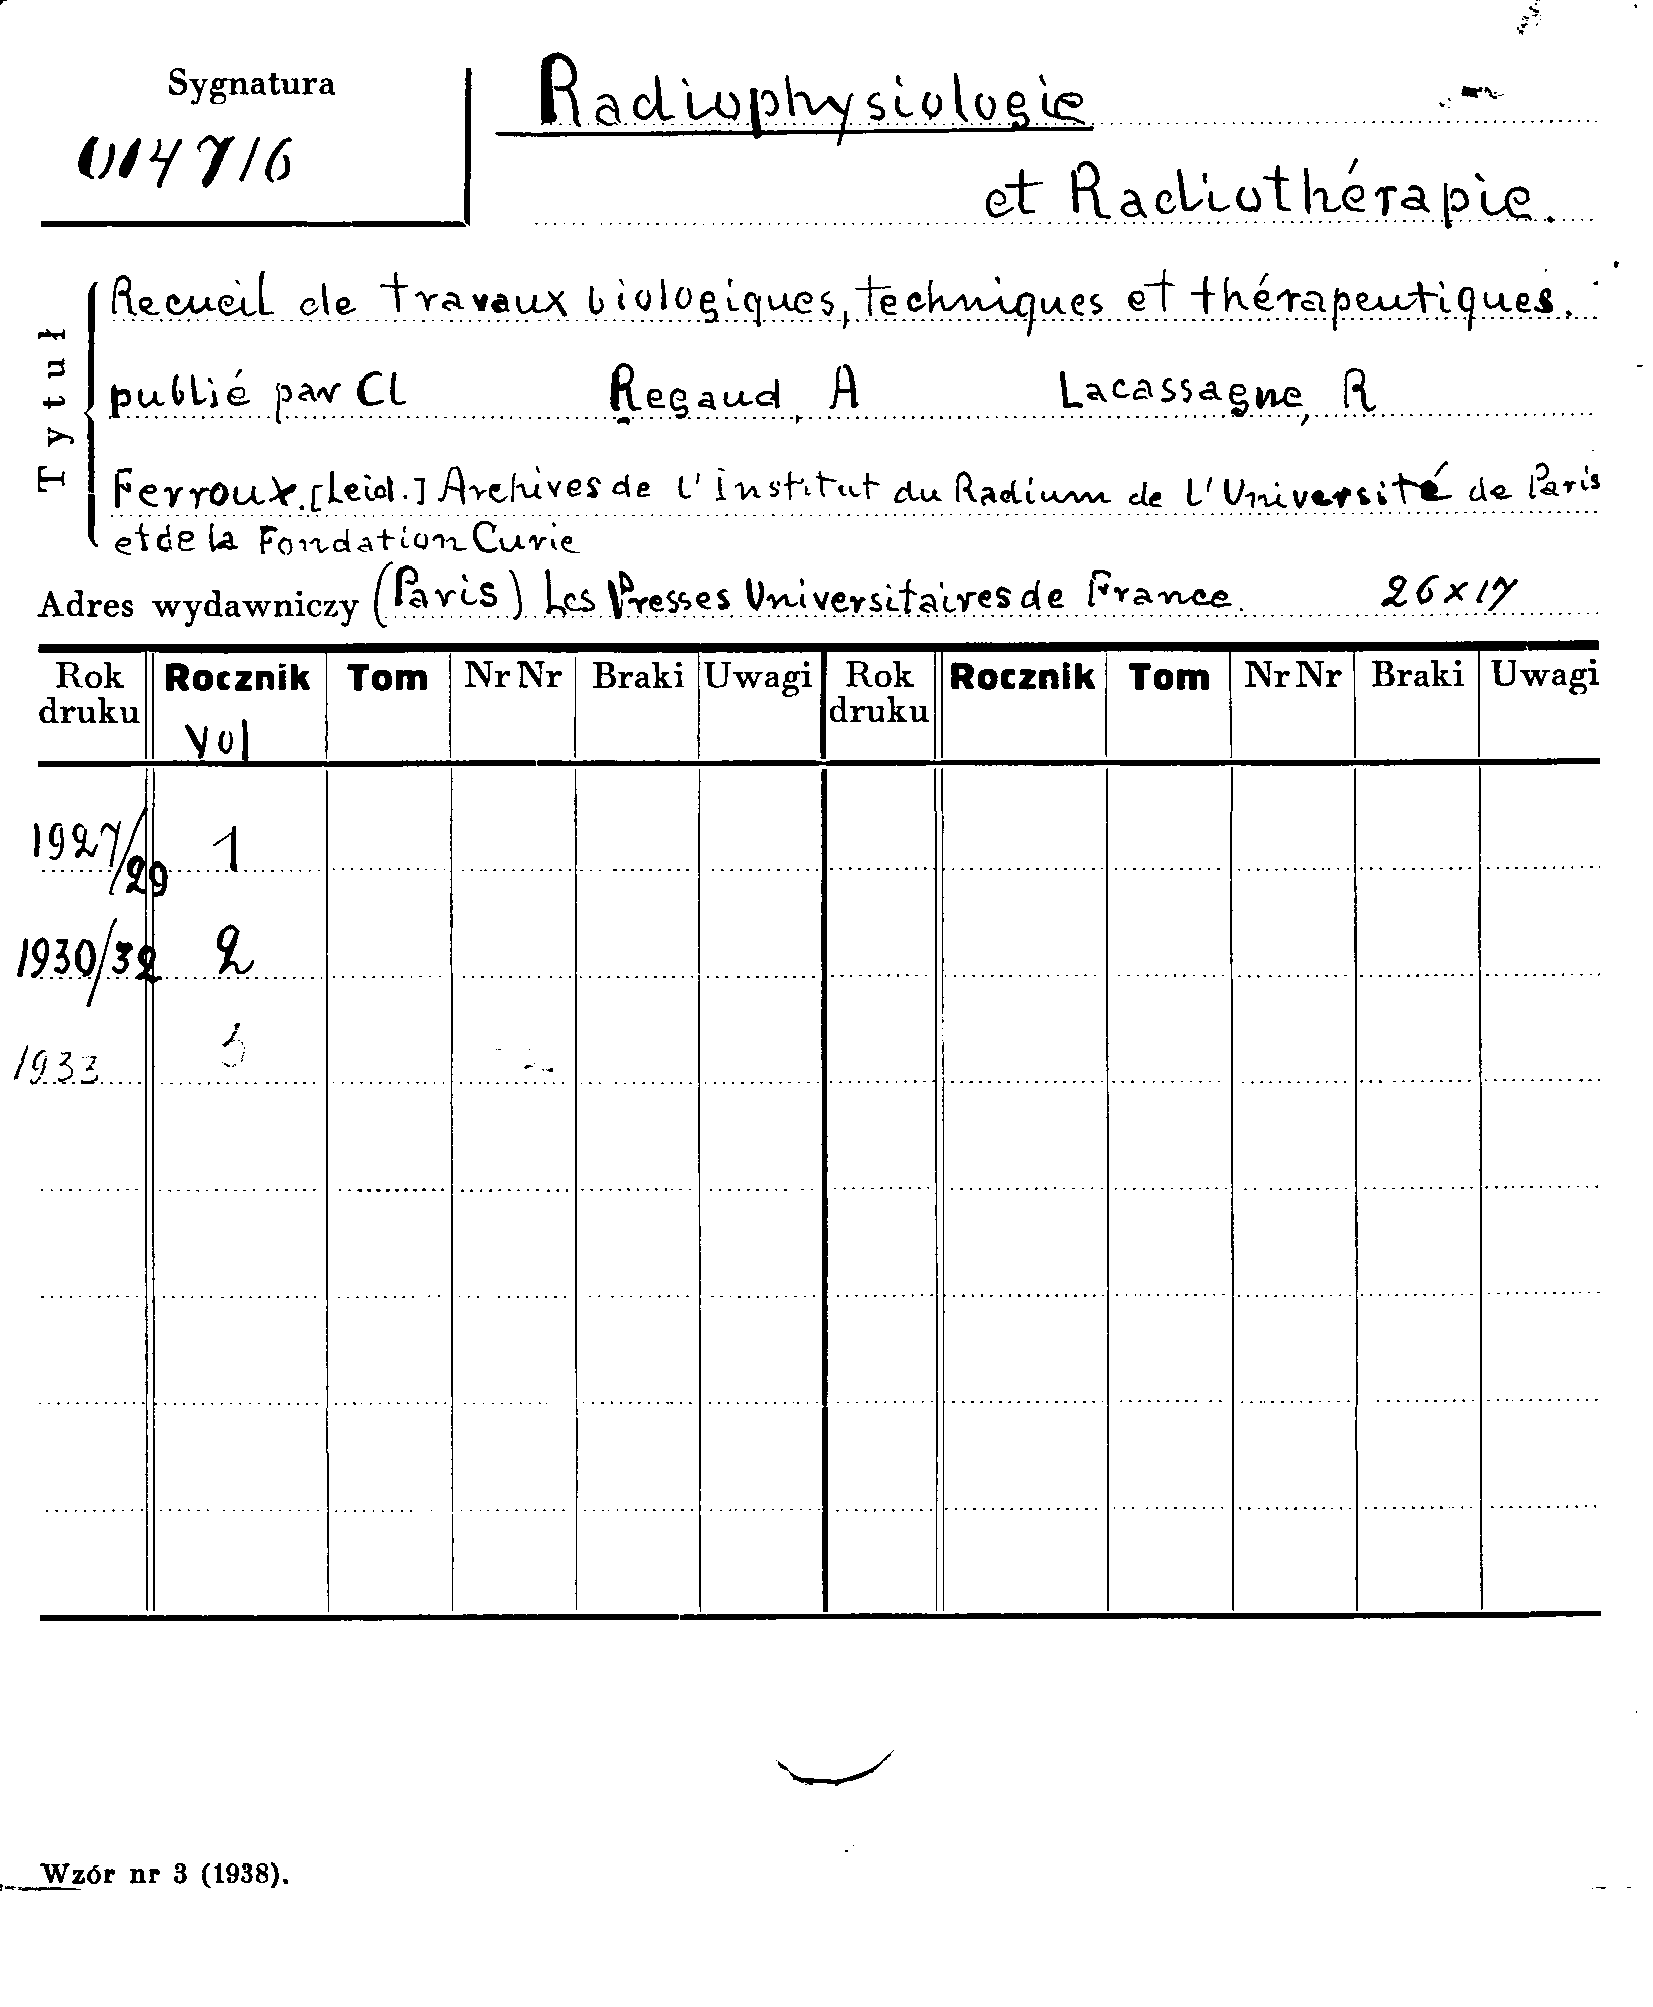 Sygnatura
014716
Radiophysiologie
et Radiothérapie.
Tytuł
Recueil de travaux biologiques, techniques et thérapeutiques.
publié par Cl Regaud, A Lacassagne, R
Ferroux. [Leid.] Archives de l'institut du Radium de l'Université de Paris
et de la Fondation Curie
Adres wydawniczy (Paris) Les Presses Universitaires de France. 26 x 17
Rok druku Rocznik Tom Nr Nr Braki Uwagi Rok druku Rocznik Tom Nr Nr Braki Uwagi
Vol
1927/29 1
1930/32 2
1933 3
Wzór nr 3 (1938).